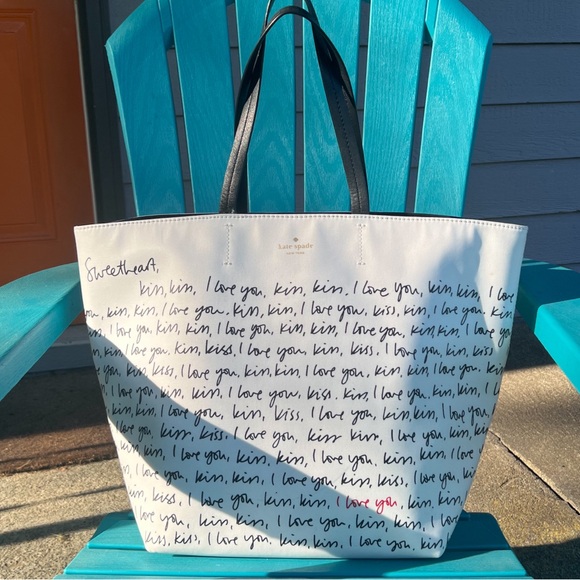 kate spade
NEW YORK
Sweetheart,
kiss, kiss, I love you, kiss, kiss. I love you, kiss, kiss, I love
you, kiss, kiss, I love you. kiss, kiss, I love you, kiss, kiss, I love you. kiss,
kiss, I love you, kiss, kiss, I love you, kiss, kiss, I love you, kiss, kiss, I love
kiss, kiss, I love you, kiss, kiss, I love you, kiss, kiss. I love you, kiss, kiss
kiss, kiss, I love you, kiss, kiss, I love you, kiss, kiss, I love you,
I love you, kiss, kiss, I love you, kiss, kiss, I love you, kiss,
kiss, kiss, I love you, kiss, kiss, I love you, kiss, kiss, I love you,
kiss, kiss, I love you, kiss kiss, I love you, kiss,
kiss, I love you, kiss, kiss, I love you, kiss, kiss, I love
kiss, I love you, kiss, kiss, I love you, kiss, kiss, I love you,
kiss, kiss, I love you, kiss, kiss, I love you, kiss, kiss,
I love you, kiss, kiss, I love you, kiss, kiss, I love you,
kiss, kiss, I love you, kiss, kiss, I love you. kiss,